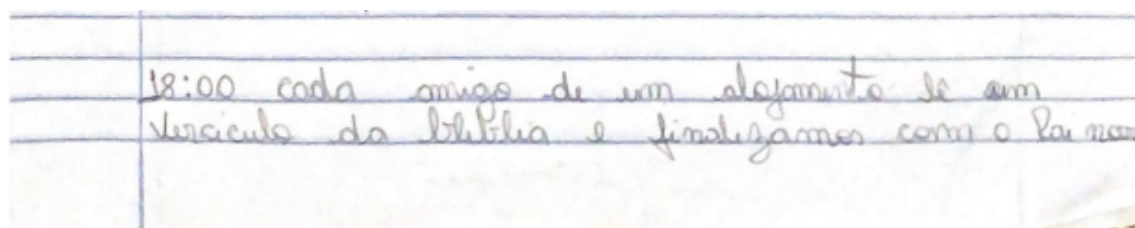 18:00 cada amigo de um alojamento lê um
versiculo da bliblia e finalizamos com o Pai noss